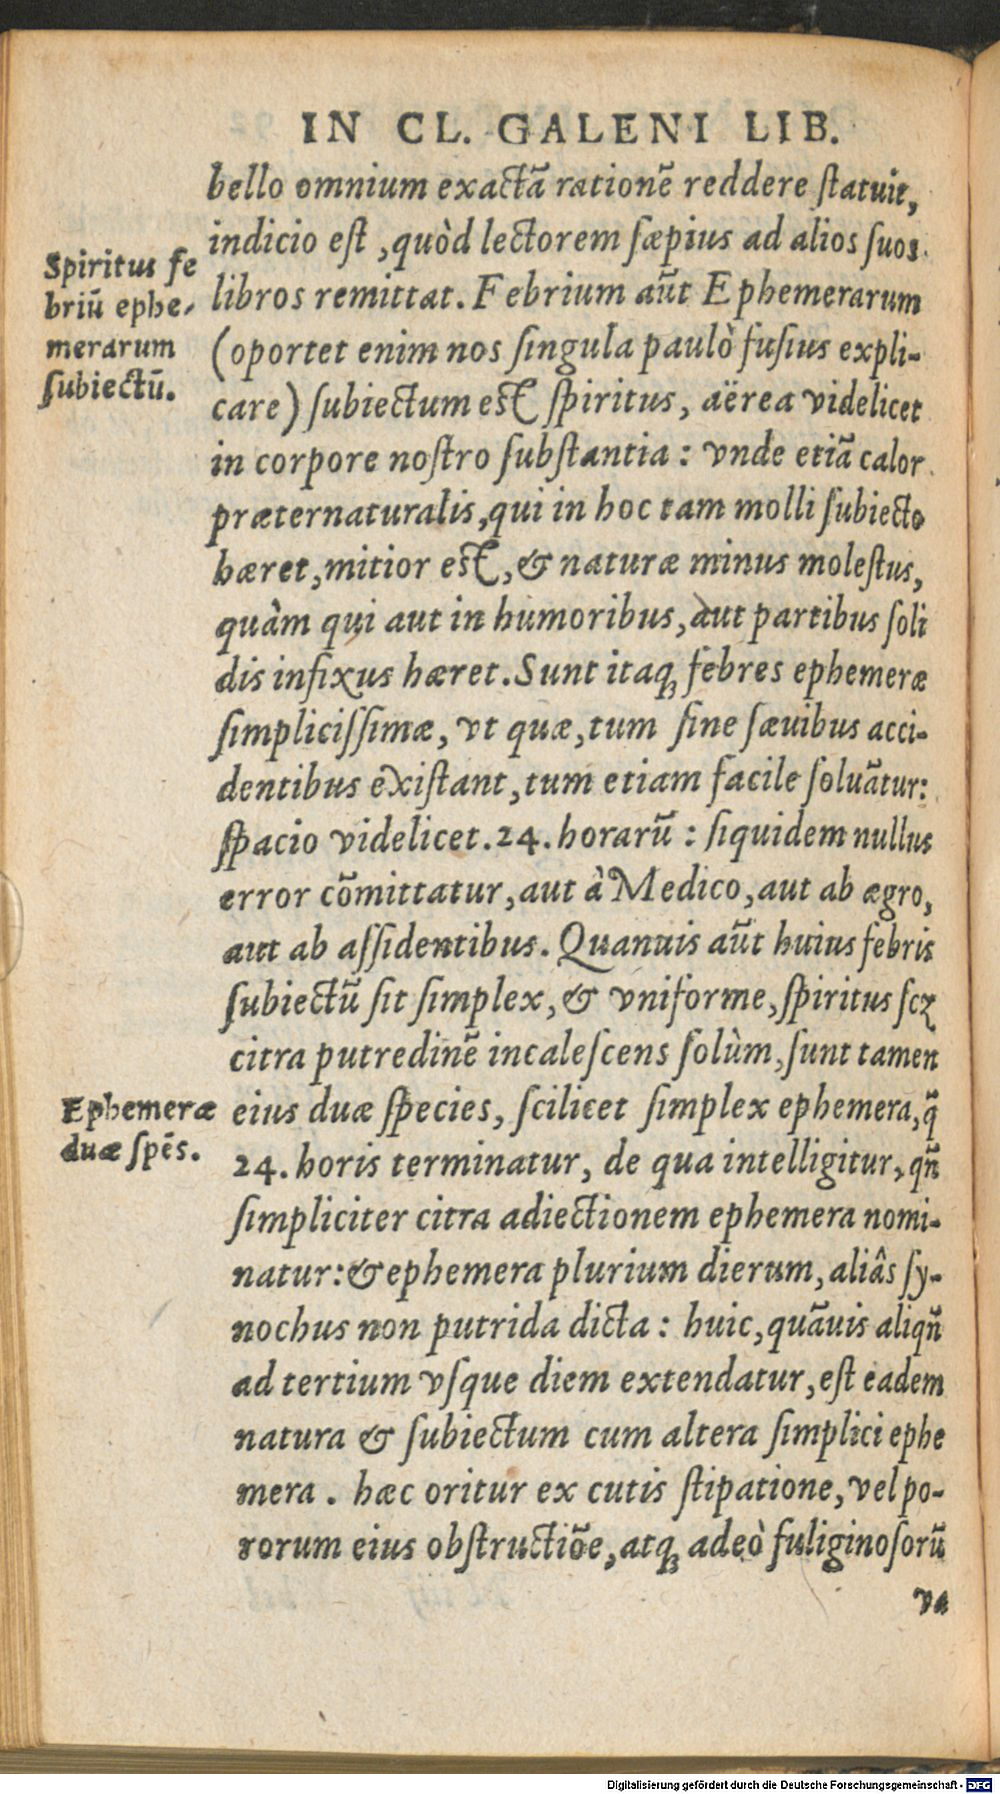 IN CL. GALENI LIB.
bello omnium exactã rationẽ reddere ſtatuit,
indicio eſt, quòd lectorem ſæpius ad alios ſuos
libros remittat. Febrium aũt Ephemerarum
(oportet enim nos ſingula paulò fuſius expli-
care) ſubiectum eſt ſpiritus, aërea videlicet
in corpore noſtro ſubſtantia: vnde etiã calor
præternaturalis, qui in hoc tam molli ſubiecto
hæret, mitior eſt, & naturæ minus moleſtus,
quàm qui aut in humoribus, aut partibus ſoli
dis infixus hæret. Sunt itaq; febres ephemeræ
ſimpliciſſimæ, vt quæ, tum ſine ſæuibus acci-
dentibus exiſtant, tum etiam facile ſoluãtur:
ſpacio videlicet. 24. horarũ: ſiquidem nullus
error cõmittatur, aut à Medico, aut ab ægro,
aut ab aſſidentibus. Quanuis aũt huius febris
ſubiectũ ſit ſimplex, & vniforme, ſpiritus ſcꝫ
citra putredinẽ incaleſcens ſolùm, ſunt tamen
eius duæ ſpecies, ſcilicet ſimplex ephemera, q̃
24. horis terminatur, de qua intelligitur, qñ
ſimpliciter citra adiectionem ephemera nomi-
natur: & ephemera plurium dierum, aliâs ſy-
nochus non putrida dicta: huic, quãuis aliqñ
ad tertium vſque diem extendatur, eſt eadem
natura & ſubiectum cum altera ſimplici ephe
mera. hæc oritur ex cutis ſtipatione, vel po-
rorum eius obſtructiõe, atq; adeò fuliginoſorũ
va
Spiritus fe
briũ ephe-
merarum
ſubiectũ.
Ephemeræ
duæ ſpẽs.
Digitalisierung gefördert durch die Deutsche Forschungsgemeinschaft - DFG